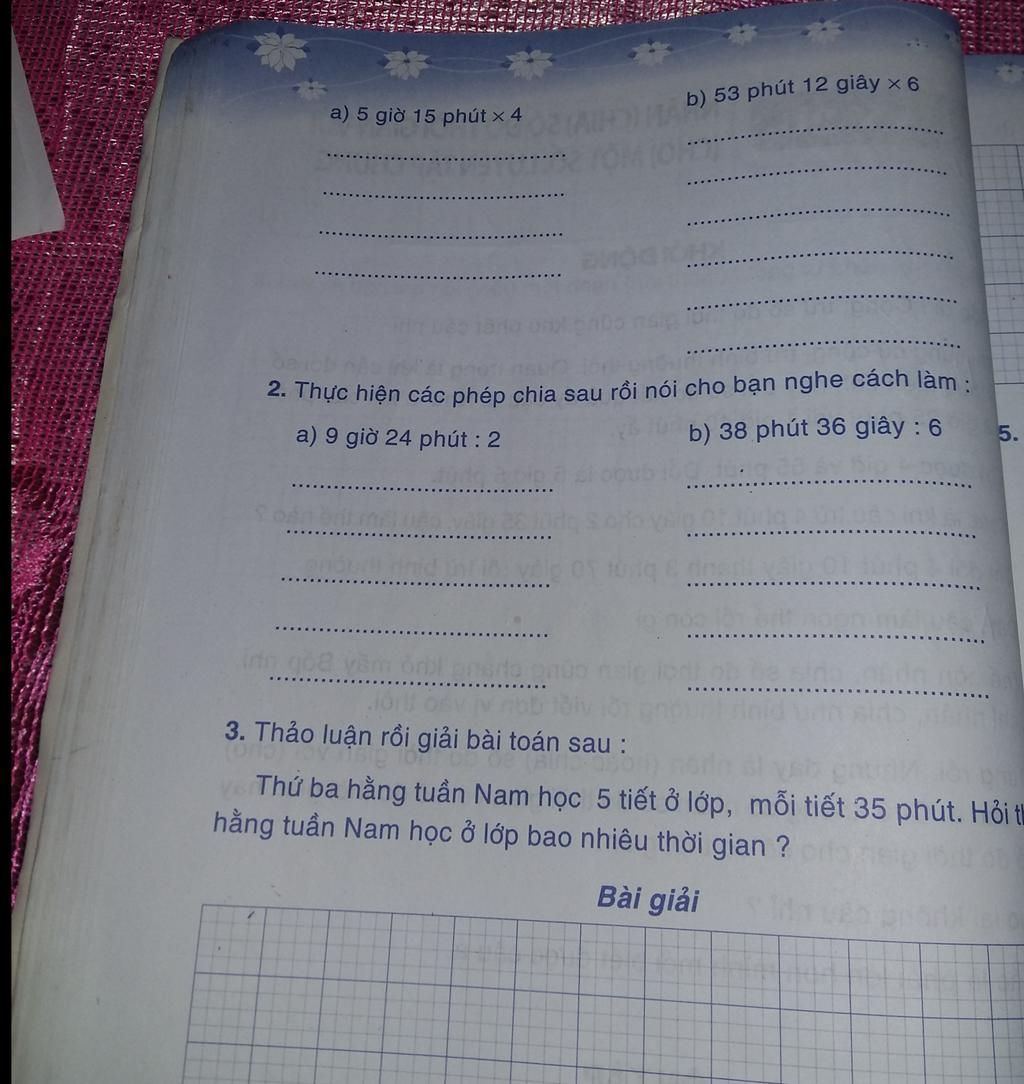 a) 5 giờ 15 phút × 4
b) 53 phút 12 giây × 6
2. Thực hiện các phép chia sau rồi nói cho bạn nghe cách làm :
a) 9 giờ 24 phút : 2
b) 38 phút 36 giây : 6
3. Thảo luận rồi giải bài toán sau :
Thứ ba hằng tuần Nam học 5 tiết ở lớp, mỗi tiết 35 phút. Hỏi
hằng tuần Nam học ở lớp bao nhiêu thời gian ?
Bài giải
5.